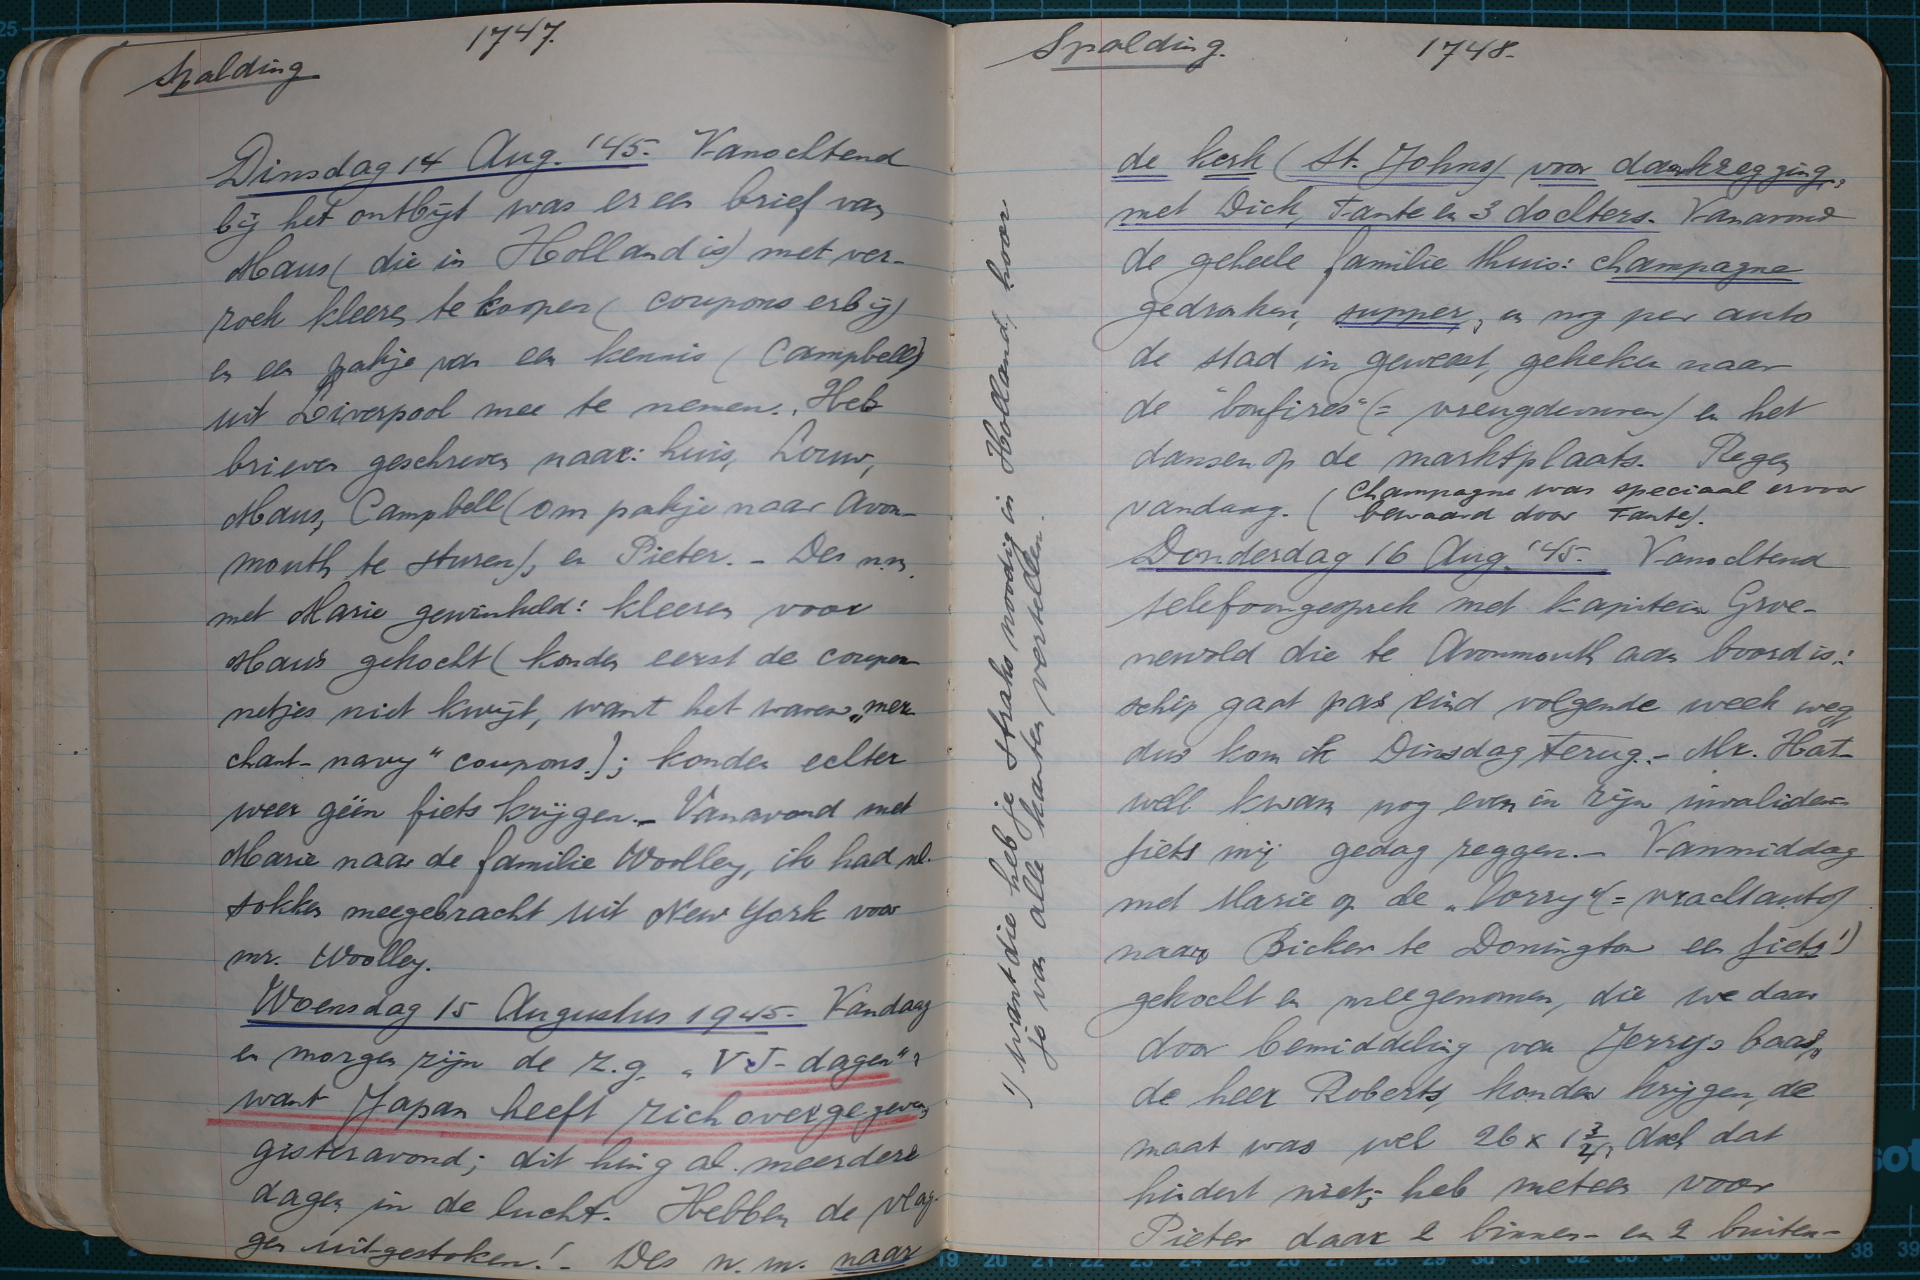 1747.
Spalding
Dinsdag 14 Aug. '45. Vanochtend
bij het ontbijt was er een brief van
Maus (die in Holland is) met ver-
zoek kleeren te koopen (coupons erbij)
en een pakje van een kennis (Campbell)
uit Liverpool mee te nemen. Heb
brieven geschreven naar: huis, Louw,
Maus, Campbell (om pakje naar Avon-
mouth te sturen), en Pieter. - Des n.m.
met Marie gewinkeld: kleeren voor
Maus gekocht (konden eerst de coupon-
netjes niet kwijt, want het waren „mer-
chant-navy" coupons.); konden echter
weer géén fiets krijgen. - Vanavond met
Marie naar de familie Woolley, ik had nl.
sokken meegebracht uit New York voor
mr. Woolley.
Woensdag 15 Augustus 1945. Vandaag
en morgen zijn de z.g. „VJ-dagen",
want Japan heeft zich overgegeven,
gisteravond; dit hing al meerdere
dagen in de lucht. Hebben de vlag-
gen uitgestoken! - Des n.m. naar
Spalding.
1748.
de kerk (St. Johns) voor dankzegging,
met Dick, Tante en 3 dochters. Vanavond
de geheele familie thuis: champagne
gedronken, supper, en nog per auto
de stad in geweest, gekeken naar
de "bonfires" (= vreugdevuren) en het
dansen op de marktplaats. Regen
vandaag. (Champagne was speciaal ervoor
bewaard door Tante).
Donderdag 16 Aug. '45. Vanochtend
telefoongesprek met kapitein Groe-
newold die te Avonmouth aan boord is:
schip gaat pas eind volgende week weg,
dus kom ik Dinsdag terug. - Mr. Hat-
well kwam nog even in zijn invaliden-
fiets mij gedag zeggen. - Vanmiddag
met Marie op de „lorry" (= vrachtauto)
naar Bicker te Donington een fiets 1)
gekocht en meegenomen, die we daar
door bemiddeling van Jerry's baas,
de heer Roberts, konden krijgen, de
maat was wel 26 x 1 3/4, doch dat
hindert niet; heb meteen voor
Pieter daar 2 binnen- en 2 buiten-
1) want die heb je straks noodig in Holland, hoor
je van alle kanten vertellen.